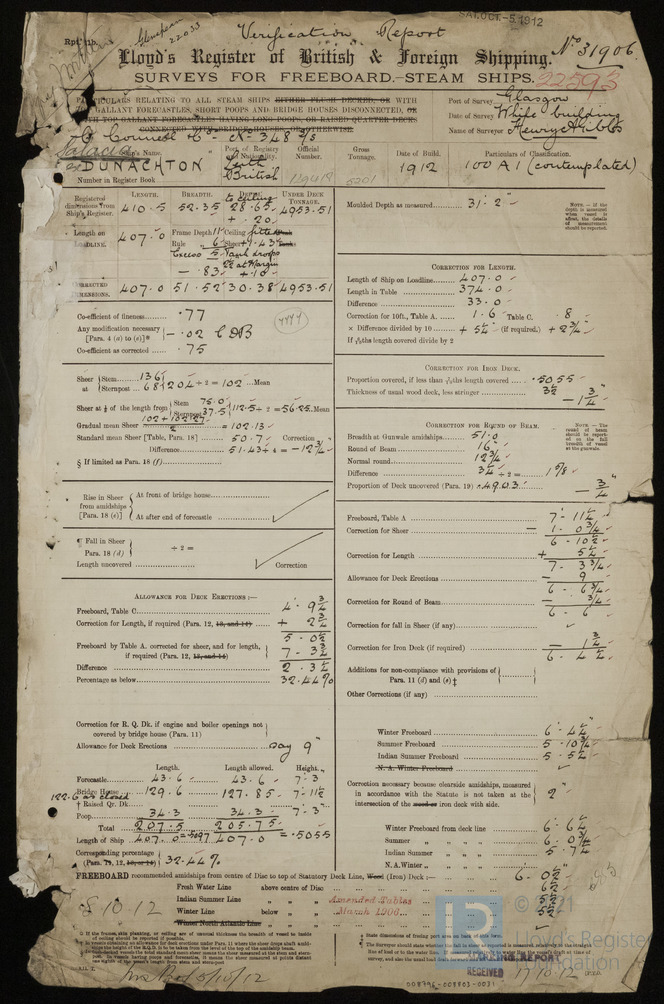 SAT. OCT. 5 1912
Verification Report
Rpt. 11b.
Glenspean
22033
No 31906.
Lloyd's Register of British & Foreign Shipping.
SURVEYS FOR FREEBOARD.—STEAM SHIPS.
22593
PARTICULARS RELATING TO ALL STEAM SHIPS EITHER FLUSH DECKED, OR WITH
TOP GALLANT FORECASTLES, SHORT POOPS AND BRIDGE HOUSES DISCONNECTED, OR
WITH TOP GALLANT FORECASTLES HAVING LONG POOPS, OR RAISED QUARTER DECKS
CONNECTED WITH BRIDGE HOUSES, OR OTHERWISE.
Port of Survey Glasgow
Date of Survey While building
Name of Surveyor Henry A Gibbs
Ship's Name.
DUNACHTON
Port of Registry and Nationality.
Leith
British
Official Number.
Gross Tonnage.
5201
Date of Build.
1912
Particulars of Classification.
100 A1 (contemplated)
Number in Register Book
LENGTH. BREADTH. DEPTH. UNDER DECK TONNAGE.
Registered dimensions from Ship's Register.
410.5 52.35 28.65 4953.51
to Ceiling
+ .20
Length on LOADLINE.
407.0
Frame Depth 11" Ceiling fitted
Rule 6 Sheer +.43
Excess 5 Tank drops
22 at Margin
- .83 + 1.10
CORRECTED DIMENSIONS.
407.0 51.52 30.38 4953.51
Co-efficient of fineness .77
Any modification necessary [Para. 4 (a) to (e)]* - .02 CDB
Co-efficient as corrected .75
4444
Sheer at Stem 136
Sternpost 68 } 204 ÷ 2 = 102 Mean
Sheer at ⅛ of the length from Stem 75.0
Sternpost 37.5 } 112.5 ÷ 2 = 56.25 Mean
Gradual mean Sheer = 102.13
Standard mean Sheer [Table, Para. 18] 50.7 Correction
Difference 51.43 ÷ 4 = -12¾"
§ If limited as Para. 18 (f)
Rise in Sheer from amidships [Para. 18 (e)]
At front of bridge house
At after end of forecastle
¶ Fall in Sheer Para. 18 (d) ÷ 2 =
Length uncovered Correction
ALLOWANCE FOR DECK ERECTIONS :—
Freeboard, Table C. 4 . 9¾
Correction for Length, if required (Para. 12, 13, and 14) + 2¾
5 . 0½
Freeboard by Table A. corrected for sheer, and for length, if required (Para. 12, 13, and 14) 7 - 3¾
Difference 2 . 3¼
Percentage as below 32.44%
Correction for R. Q. Dk. if engine and boiler openings not covered by bridge house (Para. 11)
Allowance for Deck Erections say 9"
Length. Length allowed. Height.
Forecastle 43.6 43.6 7-3
122.6 as closed
Bridge House 129.6 127.85 7-11½
† Raised Qr. Dk.
Poop 34.3 34.3 7-3"
Total 207.5 205.75
Length of Ship 407.0 = .5097 407.0 = .5055
Corresponding percentage (Para. 12, 13, or 14) 32.44%
Moulded Depth as measured 31 . 2
NOTE.—If the depth is measured when vessel is afloat, the details of measurement should be reported.
CORRECTION FOR LENGTH.
Length of Ship on Loadline 407.0
Length in Table 374.0
Difference 33.0
Correction for 10ft., Table A. 1.6 Table C. .8
× Difference divided by 10 + 5¼ (if required.) + 2¾
If 6/10ths length covered divide by 2
CORRECTION FOR IRON DECK.
Proportion covered, if less than 7/10ths length covered .5055
Thickness of usual wood deck, less stringer 3½
- 1¾
CORRECTION FOR ROUND OF BEAM.
NOTE.—The round of beam should be reported on the full breadth of vessel at the gunwale.
Breadth at Gunwale amidships 51.0
Round of Beam 16
Normal round 12¾
Difference 3¼ ÷ 2 = 1⅝
Proportion of Deck uncovered (Para. 19) × .4903 - ¾
Freeboard, Table A 7 - 11¼
Correction for Sheer - 1. 0¾
6 - 10½
Correction for Length + 5¼
7 - 3¾
Allowance for Deck Erections - 9
6 - 6¾
Correction for Round of Beam - ¾
6 - 6
Correction for fall in Sheer (if any)
Correction for Iron Deck (if required) - 1¾
6 - 4¼
Additions for non-compliance with provisions of Para. 11 (d) and (e) ‡
Other Corrections (if any)
Winter Freeboard 6 - 4¼
Summer Freeboard 5 . 10¾
Indian Summer Freeboard 5 - 5¼
N. A. Winter Freeboard
Correction necessary because clearside amidships, measured in accordance with the Statute is not taken at the intersection of the wood or iron deck with side. 2"
Winter Freeboard from deck line 6 . 6¼
Summer „ „ „ „ 6 . 0¾
Indian Summer „ „ „ 5 - 7¼
N. A. Winter „ „ „
FREEBOARD recommended amidships from centre of Disc to top of Statutory Deck Line, Wood (Iron) Deck :— 6 - 0½
Fresh Water Line above centre of Disc
Indian Summer Line „ „
Winter Line below „
Winter North Atlantic Line „
Amended Tables
March 1906
8.10.12
5/10/12
© 2021
Lloyd's Register
Foundation
RECEIVED 17.10.12
008796-008803-0031